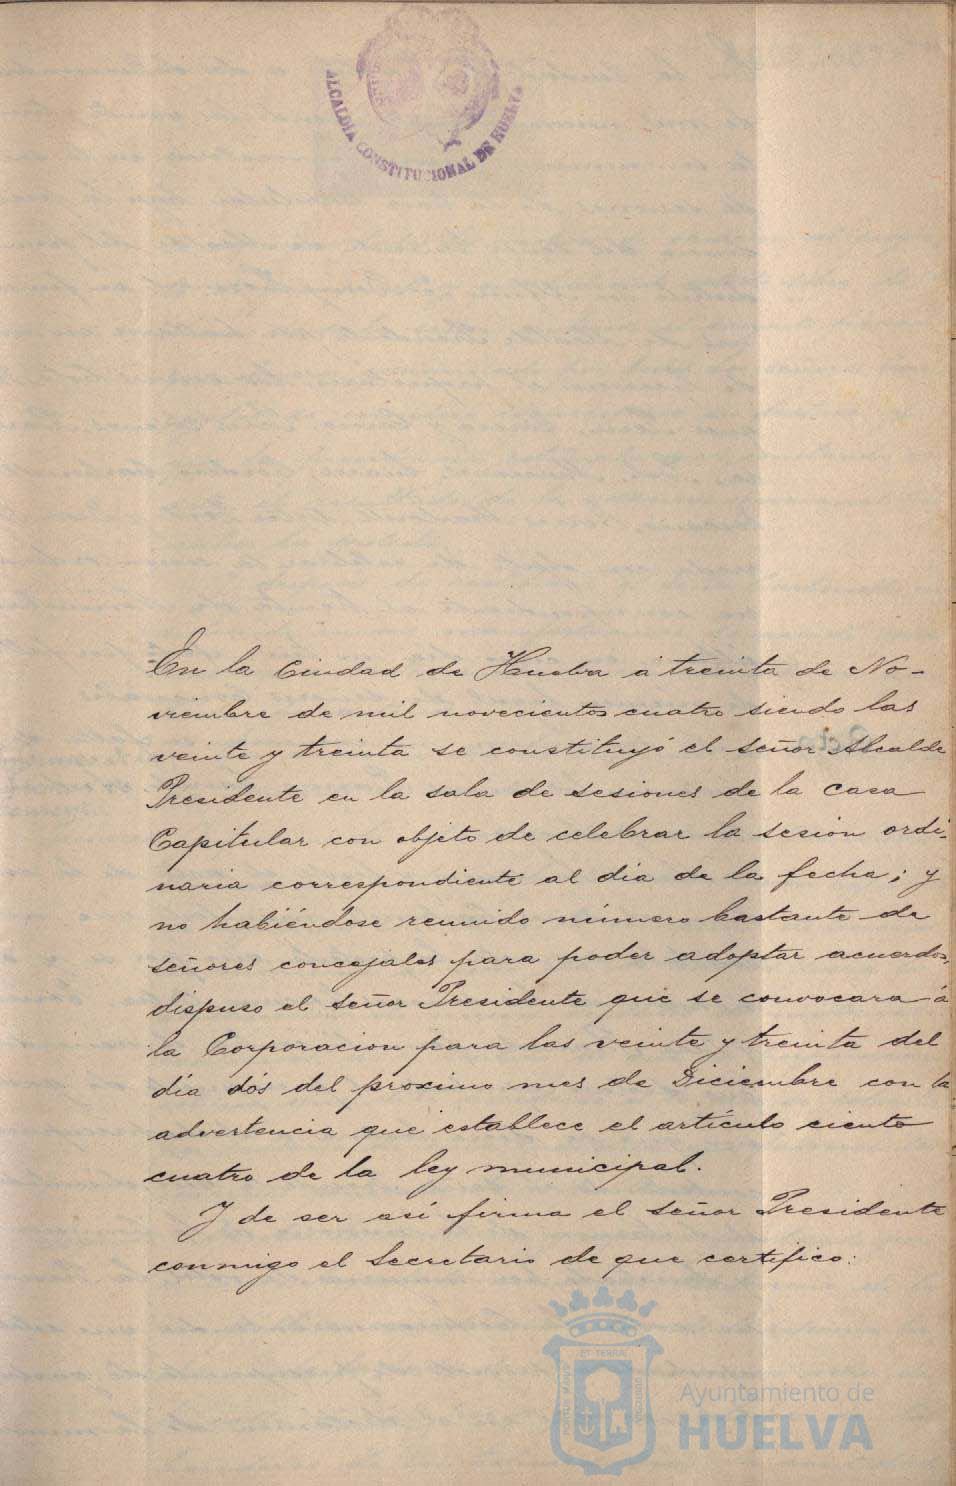 ALCALDÍA CONSTITUCIONAL DE HUELVA
En la Ciudad de Huelva á treinta de No-
viembre de mil novecientos cuatro siendo las
veinte y treinta se constituyó el señor Alcalde
Presidente en la sala de sesiones de la casa
Capitular con objeto de celebrar la sesion ordi-
naria correspondiente al dia de la fecha; y
no habiéndose reunido número bastante de
señores concejales para poder adoptar acuerdos,
dispuso el señor Presidente que se convocara á
la Corporacion para las veinte y treinta del
dia dos del proximo mes de Diciembre con la
advertencia que establece el artículo ciento
cuatro de la ley municipal.
Y de ser así firma el señor Presidente
conmigo el Secretario de que certifico:
Ayuntamiento de
HUELVA